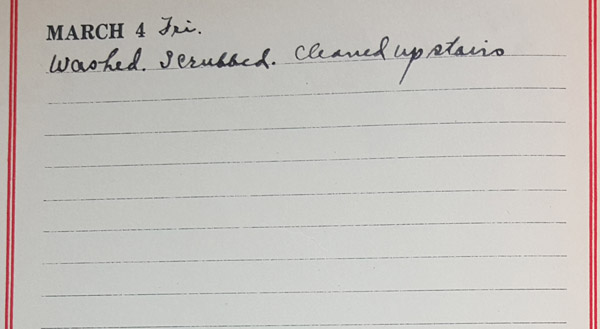 MARCH 4 Fri.
Washed. Scrubbed. Cleaned up stairs